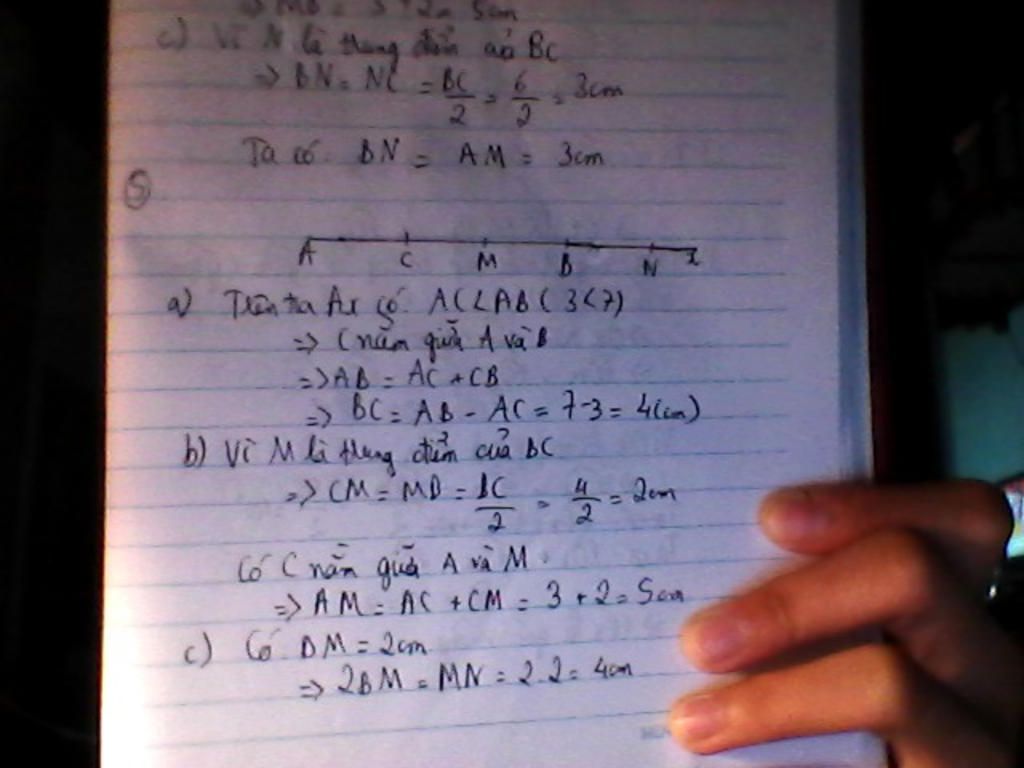 => MB = 3 + 2 = 5cm
c) Vì N là trung điểm của BC
=> BN = NC = BC/2 = 6/2 = 3cm
Ta có BN = AM = 3cm
5
A C M B N x
a) Trên tia Ax có: AC < AB (3 < 7)
=> C nằm giữa A và B
=> AB = AC + CB
=> BC = AB - AC = 7-3 = 4(cm)
b) Vì M là trung điểm của BC
=> CM = MB = BC/2 = 4/2 = 2cm
Có C nằm giữa A và M
=> AM = AC + CM = 3 + 2 = 5cm
c) Có BM = 2cm
=> 2BM = MN = 2.2 = 4cm